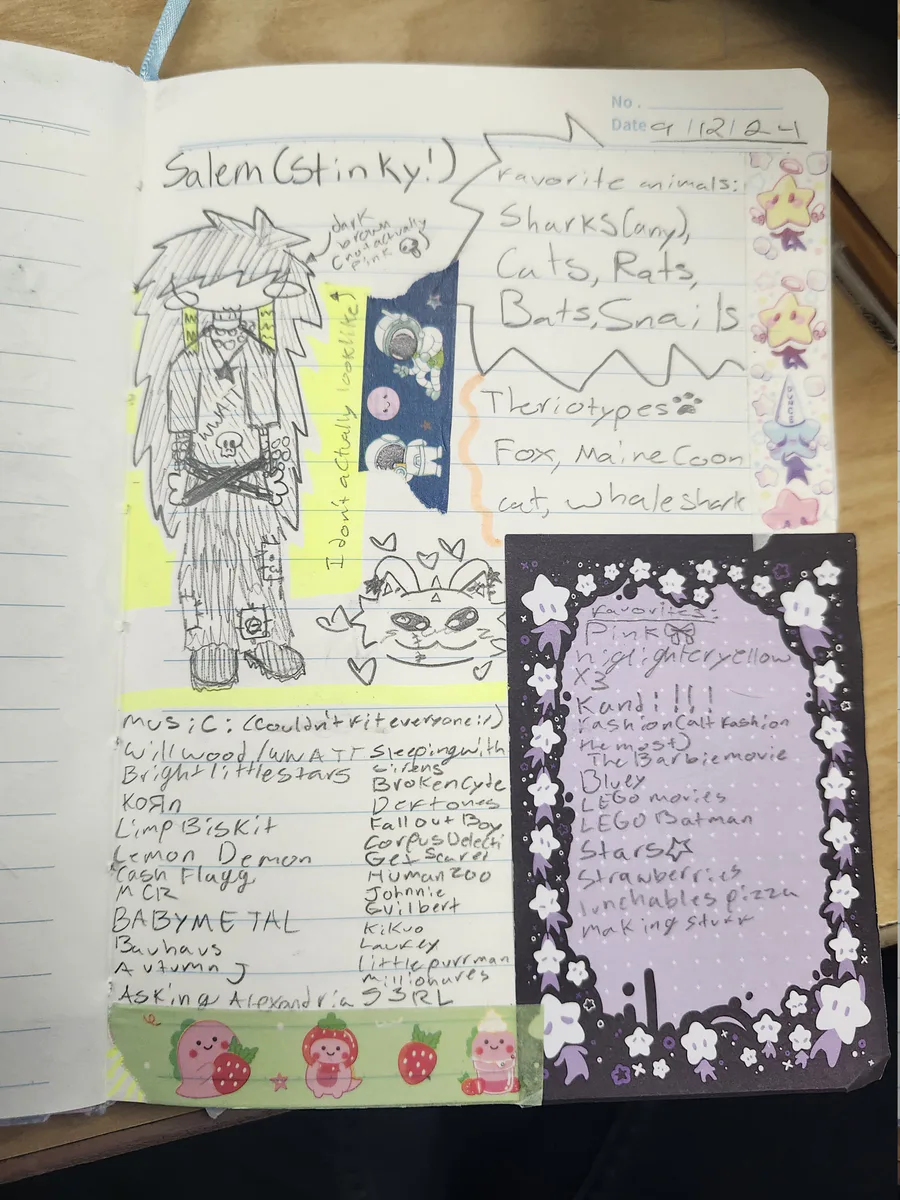 No.
Date 9/12/24
Salem (Stinky!)
dark
brown
(not actually
pink
I don't actually look like)
WWATT
Favorite animals:
Sharks (any),
Cats, Rats,
Bats, Snails
Theriotypes
Fox, Maine Coon
cat, whale shark
Favorites:
Pink
highlighter yellow
X3
Kandi!!!
Fashion (alt fashion
the most)
The Barbie movie
Bluey
LEGO movies
LEGO Batman
Stars
Strawberries
lunchables pizza
making stuff
music: (couldn't fit everyone :()
Will wood/WWATT
Bright little stars
KoЯn
Limp Biskit
Lemon Demon
Cash Flagg
MCR
BABYMETAL
Bauhaus
Autumn J
Asking Alexandria
Sleeping with
sirens
Brokencyde
Deftones
Fall out Boy
Corpus Delecti
Get Scared
Human Zoo
Johnnie
Guilbert
Kikuo
Laufey
little purrman
millionares
S3RL